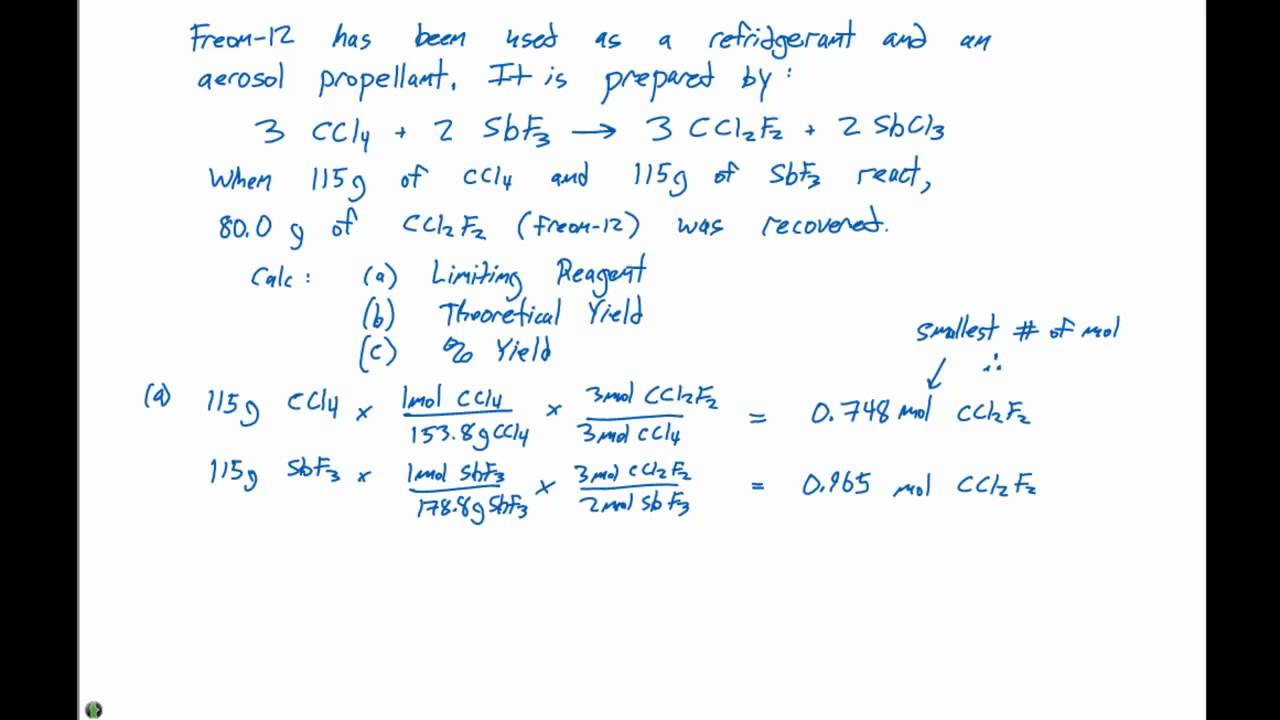 Freon-12 has been used as a refridgerant and an
aerosol propellant. It is prepared by:
3 CCl4 + 2 SbF3 → 3 CCl2F2 + 2 SbCl3
When 115g of CCl4 and 115g of SbF3 react,
80.0 g of CCl2F2 (Freon-12) was recovered.
Calc: (a) Limiting Reagent
(b) Theoretical Yield
(c) % Yield
smallest # of mol
∴
(a) 115g CCl4 x 1mol CCl4 / 153.8g CCl4 x 3mol CCl2F2 / 3mol CCl4 = 0.748 mol CCl2F2
115g SbF3 x 1mol SbF3 / 178.8g SbF3 x 3mol CCl2F2 / 2mol SbF3 = 0.965 mol CCl2F2